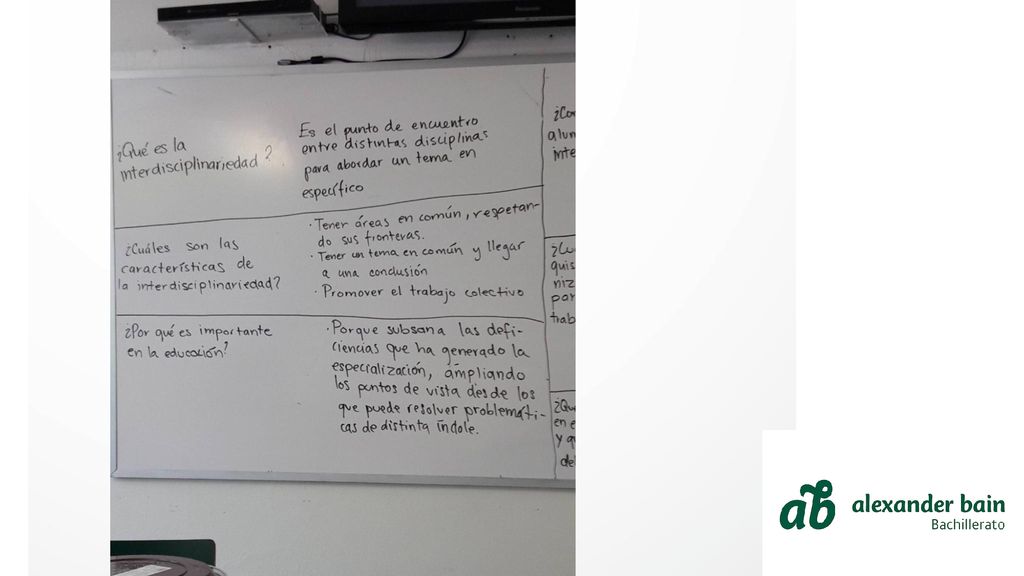 ¿Qué es la
interdisciplinariedad?
Es el punto de encuentro
entre distintas disciplinas
para abordar un tema en
específico
¿Cuáles son las
características de
la interdisciplinariedad?
· Tener áreas en común, respetan-
do sus fronteras.
· Tener un tema en común y llegar
a una conclusión
· Promover el trabajo colectivo
¿Por qué es importante
en la educación?
· Porque subsana las defi-
ciencias que ha generado la
especialización, ampliando
los puntos de vista desde los
que puede resolver problemáti-
cas de distinta índole.
¿Con
alum
inte
¿Cu
quis
niz
par
trab
¿Qu
en e
y q
de
Panasonic
ab
alexander bain
Bachillerato